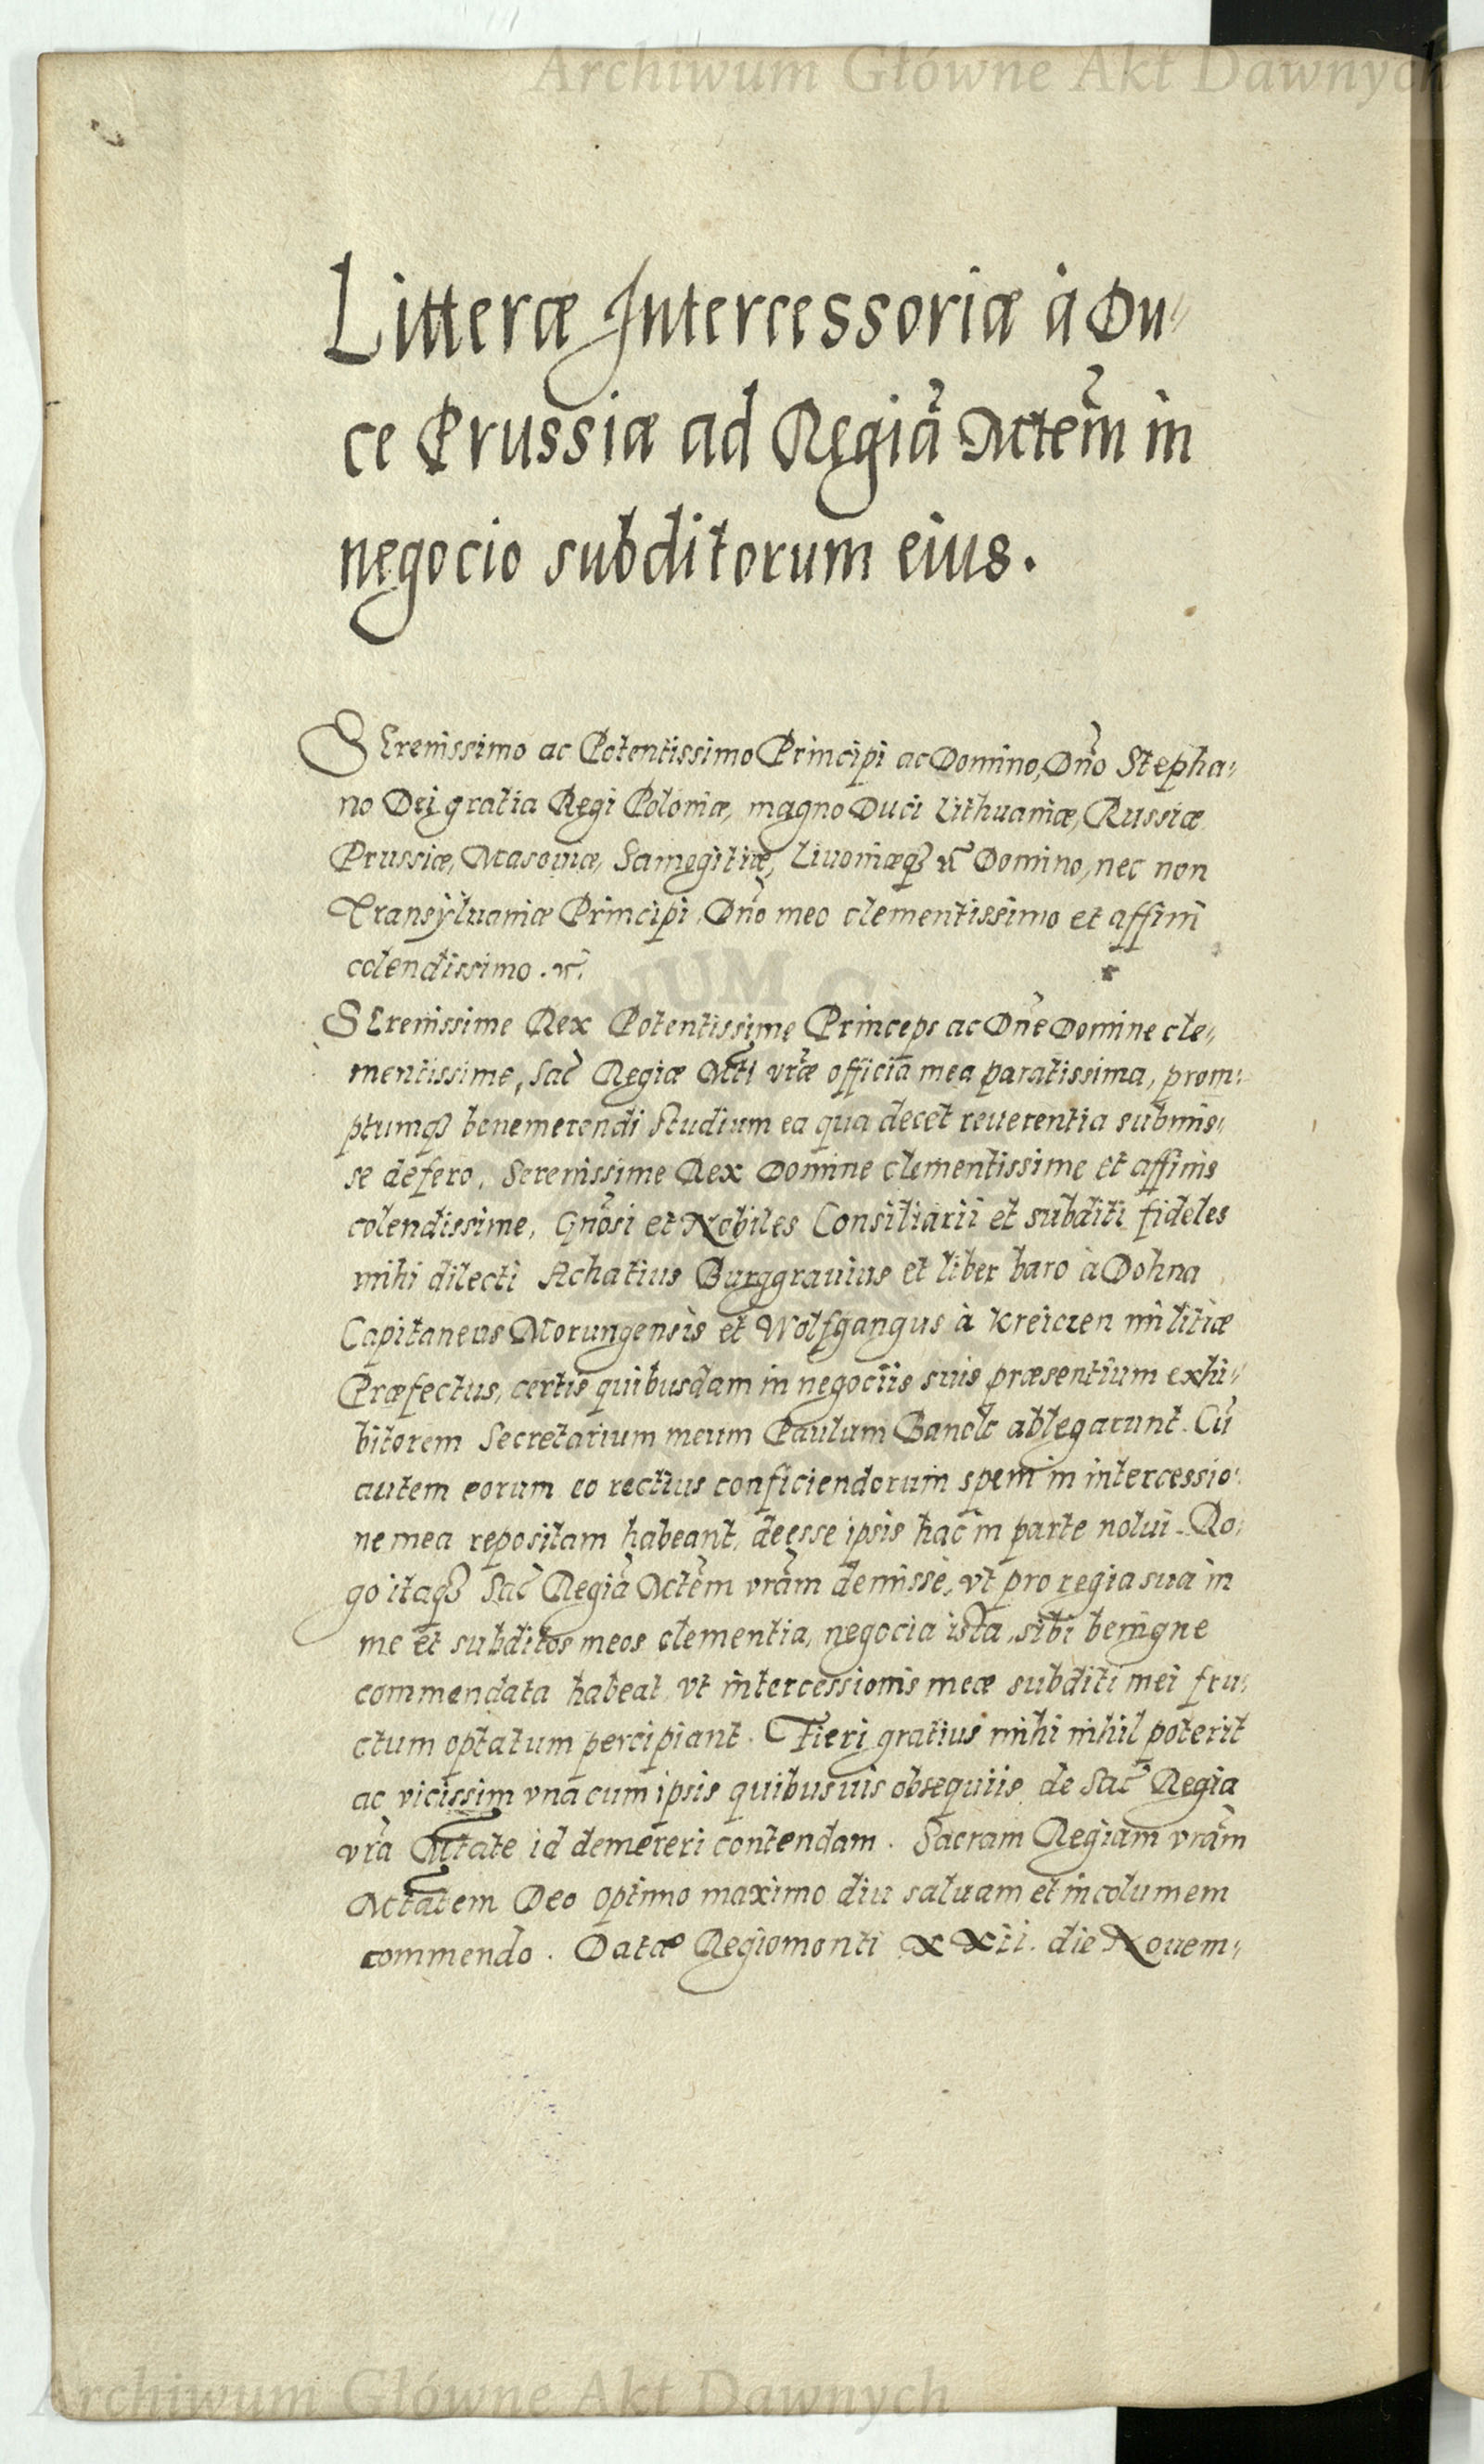 Archiwum Główne Akt Dawnych
Litteræ Intercessoriæ à Du„
ce Prussiæ ad Regiã Mtem̃ in
negocio subditorum eius.
SErenissimo ac Potentissimo Principi ac Domino, Dño Stepha„
no Dei gratia Regi Poloniæ, magno Duci Lithuaniæ, Russiæ
Prussiæ, Masoviæ, Samogitiæ, Livoniæq₃ &c̃ Domino, nec non
Transÿluaniæ Principi, Dño meo clementissimo et affini
colendissimo. &c̃.
SErenissime Rex Potentissime Princeps ac Dñe Domine cle„
mentissime, Sac̃ Regiæ Mti vræ̃ officia mea paratissima, prom„
ptumq₃ benemerendi studium ea qua decet reuerentia submis„
se defero. Serenissime Rex Domine clementissime et affinis
colendissime, Gñosi et Nobiles Consiliarii et subditi fideles
mihi dilecti Achatius Burggrauius et liber baro à Dohna
Capitaneus Morungensis et Wolfgangus à Kreiczen militiæ
Præfectus, certis quibusdam in negociis suis præsentium exhi„
bitorem Secretarium meum Paulum ablegarunt. Cũ
autem eorum eo rectius conficiendorum spem in intercessio„
ne mea repositam habeant, deesse ipsis hac in parte nolui. Ro„
go itaq₃ Sac̃ Regiã Mtem̃ vram̃ demissè, vt pro regia sua in
me et subditos meos clementia, negocia ista, sibi benigne
commendata habeat, vt intercessionis meæ subditi mei fru„
ctum optatum percipiant. Fieri gratius mihi nihil poterit
ac vicissim vna cum ipsis quibusuis obsequiis de Sac̃ Regia
vrã Mtate id demereri contendam. Sacram Regiam vram̃
Mtatem Deo optimo maximo diu saluam et incolumem
commendo. Datæ Regiomonti XXii. die Nouem„
Archiwum Główne Akt Dawnych